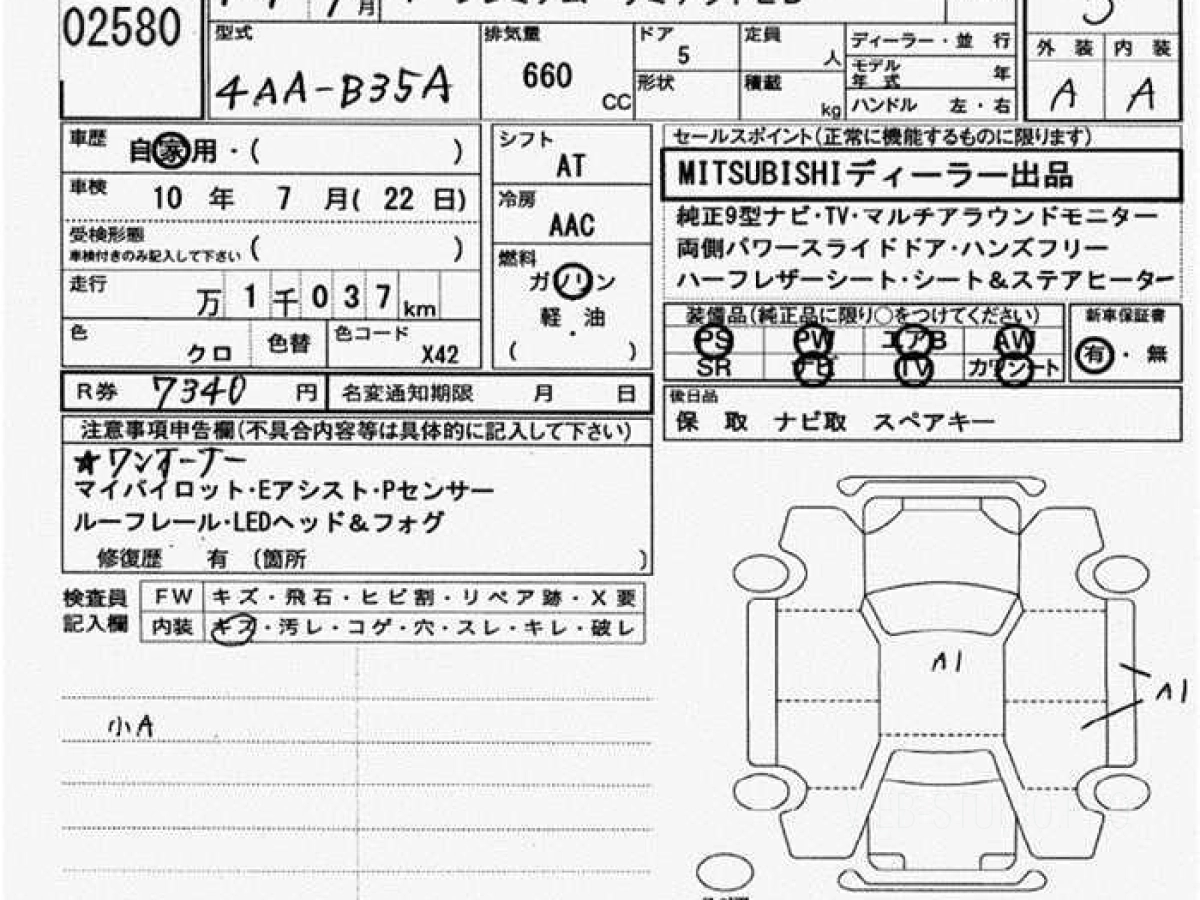 02580
月
型式
4AA-B35A
排気量
660
CC
ドア
5
形状
定員
人
積載
kg
ディーラー・並 行
モデル年式 年
ハンドル 左・右
外 装 内 装
A A
車歴 自家用・( )
車検 10 年 7 月( 22 日)
受検形態
車検付きのみ記入して下さい ( )
走行 万 1 千 0 3 7 km
色 クロ 色替 色コード X42
シフト
AT
冷房
AAC
燃料
ガソリン
軽・油
( )
セールスポイント(正常に機能するものに限ります)
MITSUBISHIディーラー出品
純正9型ナビ・TV・マルチアラウンドモニター
両側パワースライドドア・ハンズフリー
ハーフレザーシート・シート&ステアヒーター
装備品(純正品に限り○をつけてください)
PS PW エアB AW
SR ナビ TV カワシート
新車保証書
有・無
R券 7340 円 名変通知期限 月 日
後日品
保 取 ナビ取 スペアキー
注意事項申告欄(不具合内容等は具体的に記入して下さい)
★ワンオーナー
マイパイロット・Eアシスト・Pセンサー
ルーフレール・LEDヘッド&フォグ
修復歴 有 (箇所 )
検査員記入欄
FW キズ・飛石・ヒビ割・リペア跡・X要
内装 キズ・汚レ・コゲ・穴・スレ・キレ・破レ
小A
A1
A1